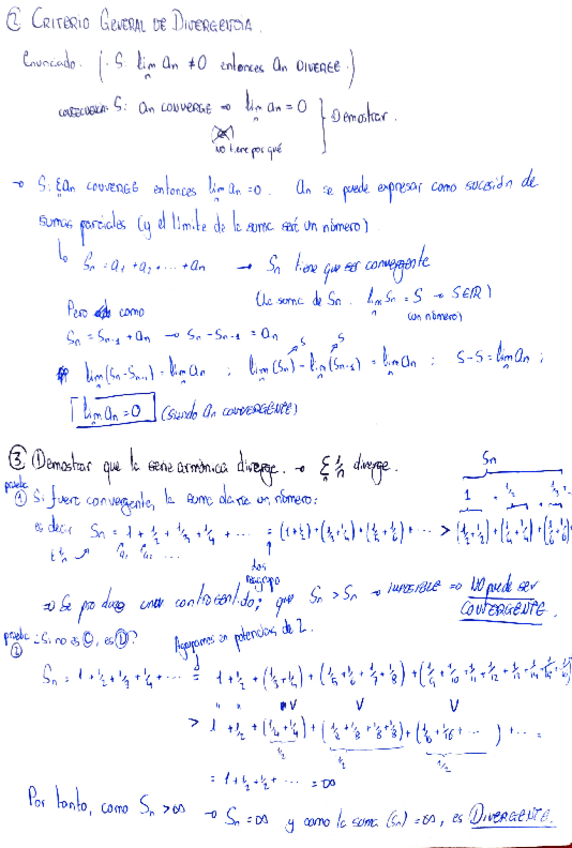 ② CRITERIO GENERAL DE DIVERGENCIA.
Enunciado. (· Si lim an ≠ 0 entonces an DIVERGE.)
n
CONSECUENCIA: Si an CONVERGE → lim an = 0 } Demostrar.
n
no tiene por qué
→ Si Σan CONVERGE entonces lim an = 0. An se puede expresar como sucesión de
sumas parciales (y el límite de la suma será un número)
↳ Sn = a1 + a2 + ... + an → Sn tiene que ser convergente
(la suma de Sn. lim Sn = S → S∈ℝ)
(un número)
Pero como
Sn = Sn-1 + an → Sn - Sn-1 = an
lim(Sn - Sn-1) = lim an ; lim(Sn) - lim(Sn-1) = lim an : S - S = lim an ;
lim an = 0 (siendo an CONVERGENTE)
③ ① Demostrar que la serie armónica diverge. → Σ 1/n diverge.
prueba ① Si fuera convergente, la suma daría un número:
Sn
1 + 1/2
es decir Sn = 1 + 1/2 + 1/3 + 1/4 + ... = (1 + 1/2) + (1/3 + 1/4) + (1/5 + 1/6) + ... > (1/2 + 1/2) + (1/4 + 1/4) + (1/6 + 1/6)
Σ 1/n
los reagrupo
⇒ Se produce una contradicción; que Sn > Sn → IMPOSIBLE ⇒ NO puede ser
CONVERGENTE.
prueba ② ¿Si no es Ⓒ, es Ⓓ?
Agrupamos en potencias de 2.
Sn = 1 + 1/2 + 1/3 + 1/4 + ... = 1 + 1/2 + (1/3 + 1/4) + (1/5 + 1/6 + 1/7 + 1/8) + (1/9 + 1/10 + 1/11 + 1/12 + 1/13 + 1/14 + 1/15 + 1/16)
> 1 + 1/2 + (1/4 + 1/4) + (1/8 + 1/8 + 1/8 + 1/8) + (1/16 + 1/16 + ...) + ... =
1/2 1/2 1/2
= 1 + 1/2 + 1/2 + ... = ∞
Por tanto, como Sn > ∞ → Sn = ∞ y como la suma (Sn) = ∞, es DIVERGENTE.